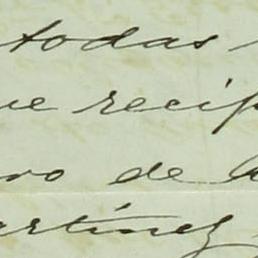 todas
ue recip
vo de
artínez